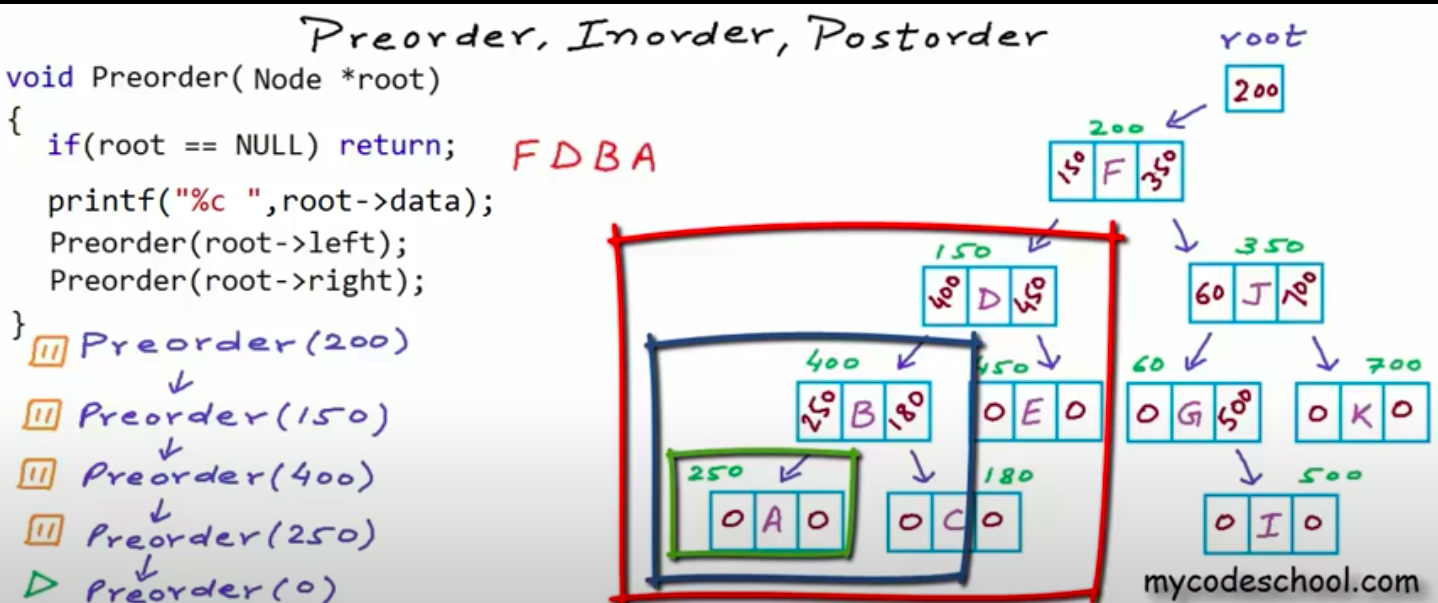 Preorder, Inorder, Postorder
void Preorder( Node *root)
{
if(root == NULL) return;
printf("%c ",root->data);
Preorder(root->left);
Preorder(root->right);
}
F D B A
Preorder(200)
Preorder(150)
Preorder(400)
Preorder(250)
Preorder(0)
root
200
200
150 F 350
150
400 D 450
350
60 J 700
400
250 B 180
450
0 E 0
60
0 G 500
700
0 K 0
250
0 A 0
180
0 C 0
500
0 I 0
mycodeschool.com